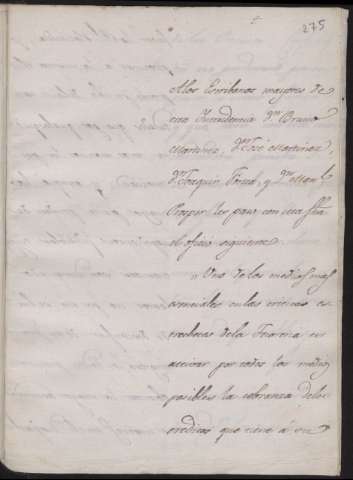 275
A los Escribanos mayores de
esta Intendencia Dn. Bruno
Martinez, Dn. Jose Martinez,
Dn. Joaquin y Dn. Man.l
Prosper les paso con esta fha.
el oficio siguiente
„Uno de los medios mas
esenciales en las criticas es
trecheces de la Tesoreria es
activar por todos los medios
posibles la cobranza de los
creditos que tiene á su